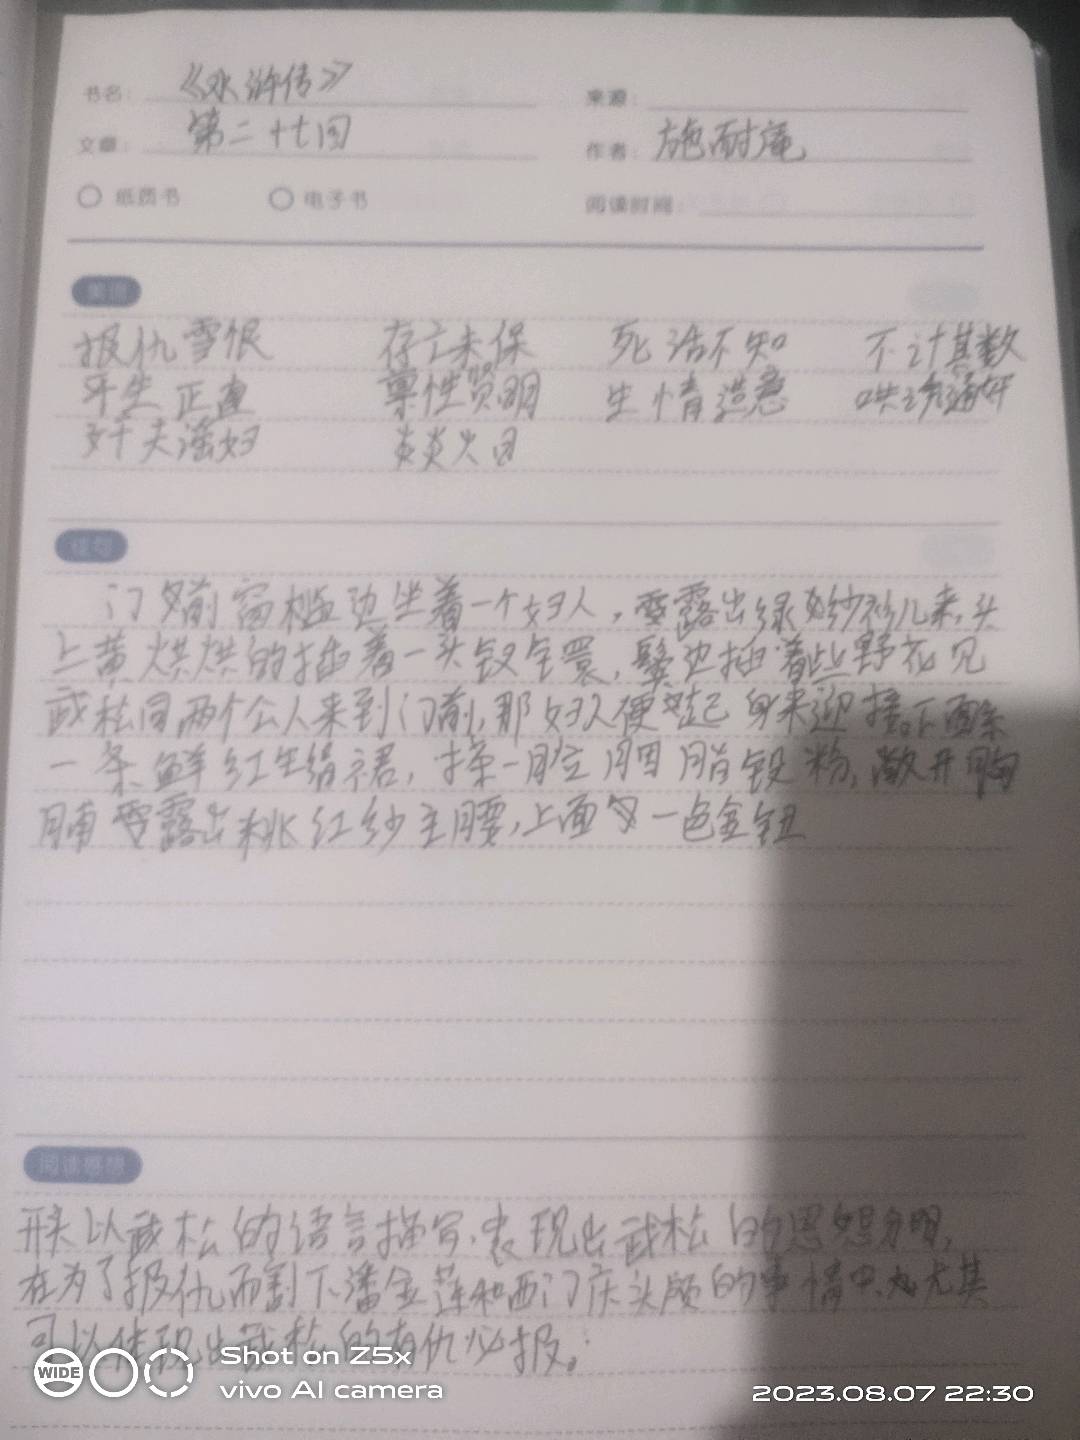 书名： 《水浒传》 来源：
文章： 第二十七回 作者： 施耐庵
纸质书 电子书 阅读时间：
美词
报仇雪恨 存亡未保 死活不知 不计其数
平生正直 禀性贤明 生情造意 哄诱通奸
奸夫淫妇 炎炎火日
佳句
门前窗槛边坐着一个妇人，露出绿纱衫儿来，头
上黄烘烘的插着一头钗环，鬓边插着些野花见
武松同两个公人来到门前，那妇人便起身来迎接下面系
一条鲜红生绢裙，搽一脸胭脂铅粉，敞开胸
脯露出桃红纱主腰，上面一色金钮
阅读感想
开头以武松的语言描写，表现出武松的恩怨分明，
在为了报仇而割下潘金莲和西门庆头颅的事情中，尤其
可以体现出武松的有仇必报。
WIDE
Shot on Z5x
vivo AI camera
2023.08.07 22:30